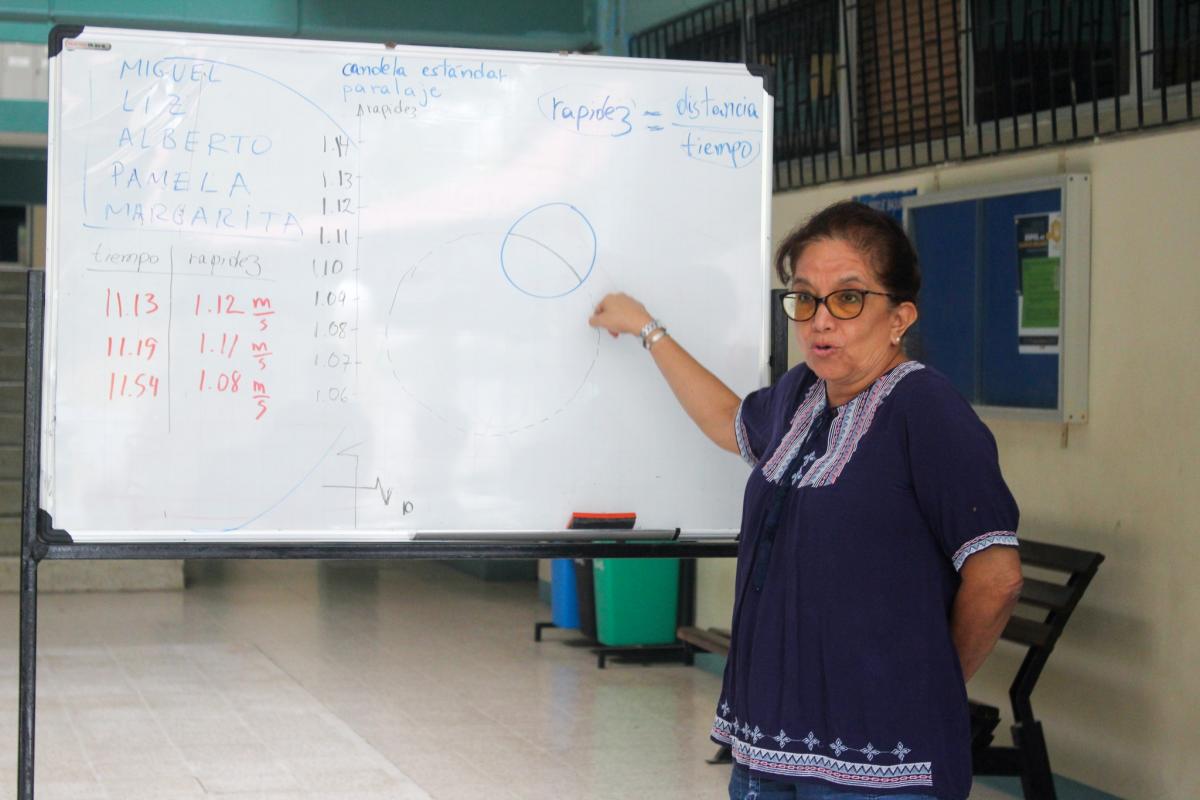 MIGUEL
LIZ
ALBERTO
PAMELA
MARGARITA
tiempo rapidez
11.13 1.12 m/s
11.19 1.11 m/s
11.54 1.08 m/s
candela estándar
paralaje
rapidez
1.14
1.13
1.12
1.11
1.10
1.09
1.08
1.07
1.06
10
rapidez = distancia
tiempo